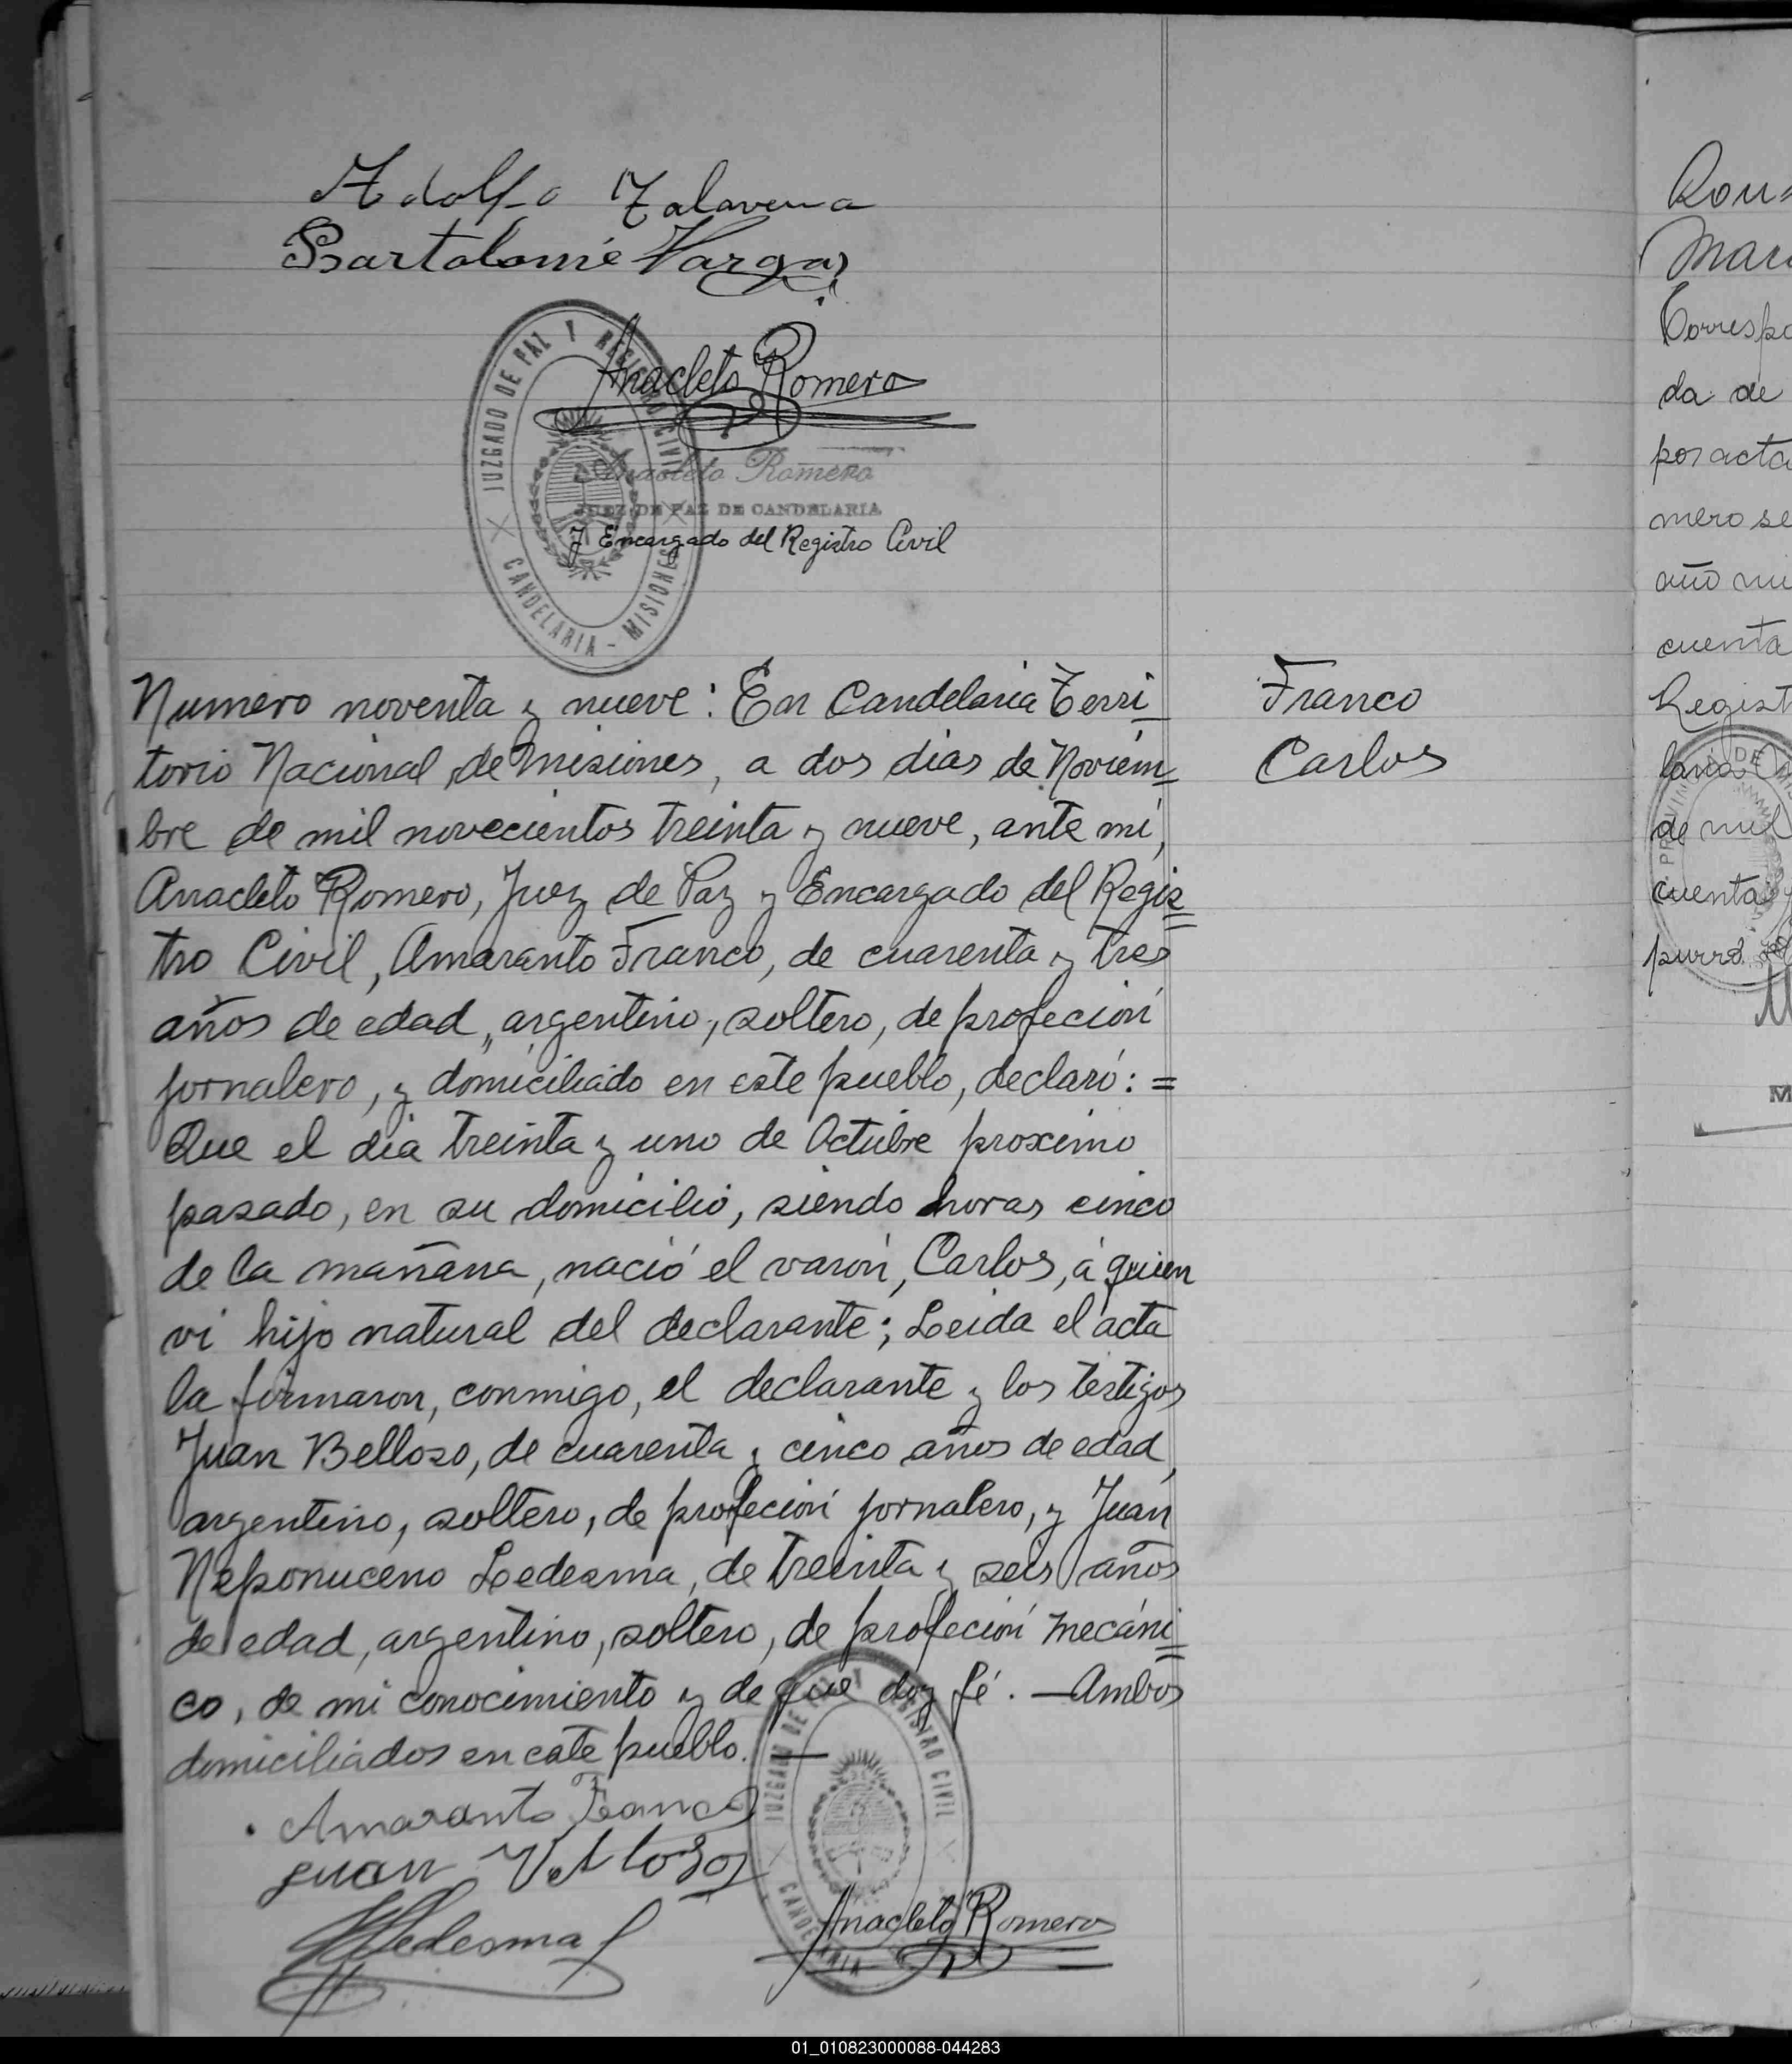 Adolfo Talavera
Bartolomé Vargas
Anacleto Romero
JUZGADO DE PAZ Y REGISTRO CIVIL
CANDELARIA - MISIONES
Anacleto Romero
JUEZ DE PAZ DE CANDELARIA
y Encargado del Registro Civil
Franco
Carlos
Numero noventa y nueve: En Candelaria Terri
torio Nacional de Misiones, a dos dias de Noviem
bre de mil novecientos treinta y nueve, ante mi,
Anacleto Romero, Juez de Paz y Encargado del Regis
tro Civil, Amaranto Franco, de cuarenta y tres
años de edad, argentino, soltero, de profeción
jornalero, y domiciliado en este pueblo, declaró: =
Que el dia treinta y uno de Octubre proximo
pasado, en su domicilio, siendo horas cinco
de la mañana, nació el varón, Carlos, á quien
vi hijo natural del declarante; Leida el acta
la firmaron, conmigo, el declarante y los testigos
Juan Belloso, de cuarenta y cinco años de edad,
argentino, soltero, de profeción jornalero, y Juan
Neponuceno Ledesma, de treinta y seis años
de edad, argentino, soltero, de profeción mecáni
co, de mi conocimiento y de que doy fé. — Ambos
domiciliados en este pueblo. —
Amaranto Franco
Juan Velloso
Ledesma
JUZGADO DE PAZ Y REGISTRO CIVIL
CANDELARIA
Anacleto Romero
Correspo
da de
por acta
mero se
año mi
cuenta
Regist
de mil
cuenta
01_010823000088-044283